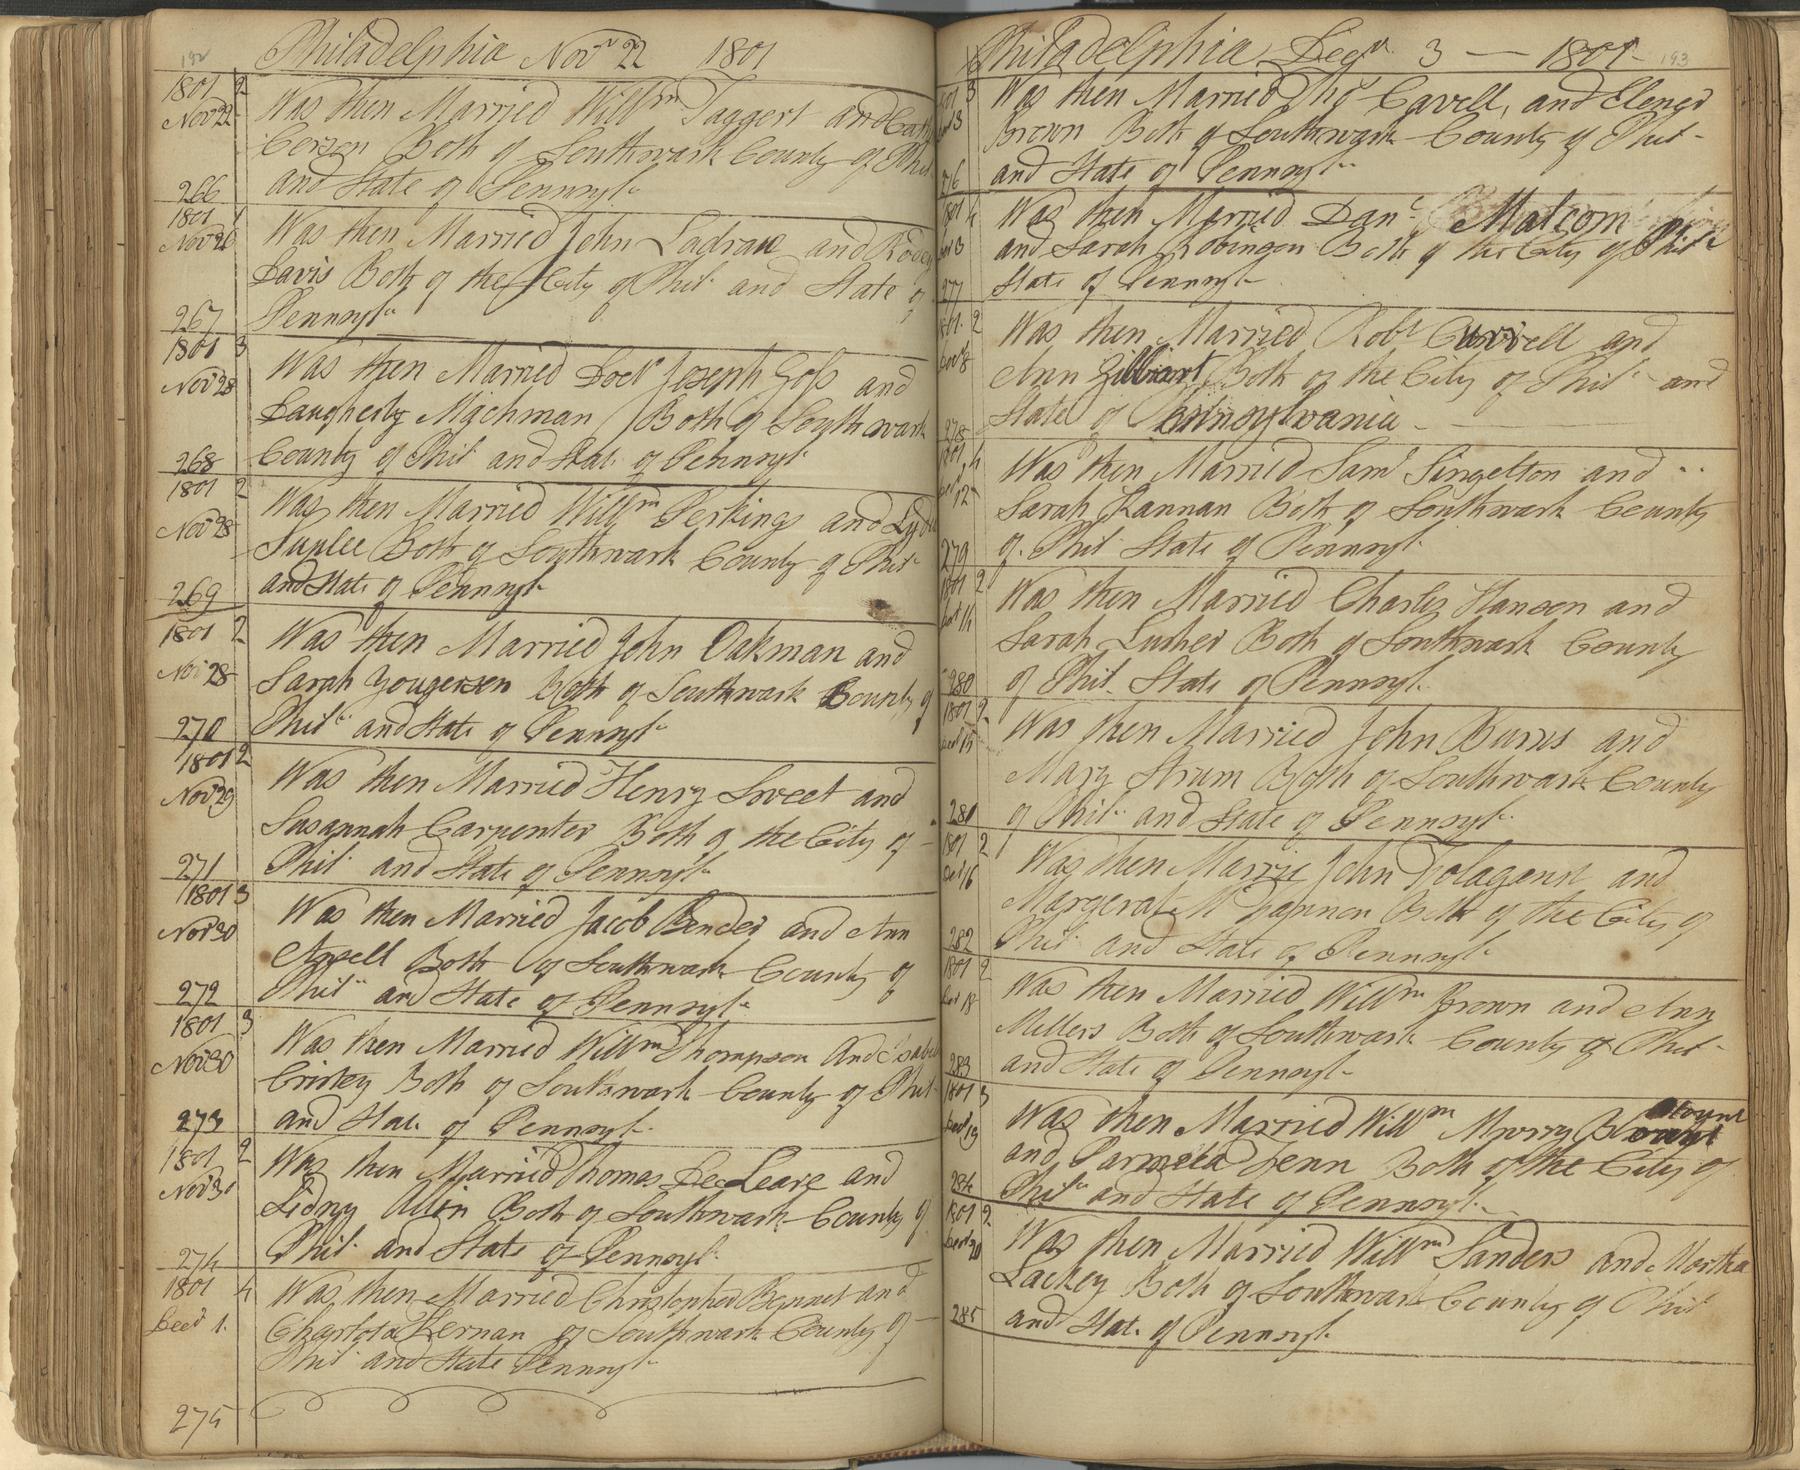 192
Philadelphia Novr 22 1801
1801 2
Novr 22
Was then Married Willm Taggert and
Both of Southwark County of Phil
and State of Pennsyla
266
1801 1
Novr 26
Was then Married John Ladraw and
Davis Both of the City of Phila and State of
Pennsyla
267
1801 3
Novr 28
Was then Married Doctr Joseph Goss and
Daugherty Michman Both of Southwark
County of Phil and State of Pennsyla
268
1801 2
Novr 28
Was then Married Willm Perkings and Lydi
Suplee Both of Southwark County of Phila
and State of Pennsyla
269
1801 2
Novr 28
Was then Married John Oakman and
Sarah Yougerson Both of Southwark County of
Phila and State of Pennsyla
270
1801 2
Novr 29
Was then Married Henry Sweet and
Susannah Carpenter Both of the City of
Phil and State of Pennsyla
271
1801 3
Novr 30
Was then Married Jacob Bender and Ann
Both of Southwark County of
Phila and State of Pennsyla
272
1801 3
Novr 30
Was then Married Willm Thompson And Isabel
Cristey Both of Southwark County of Phil
and State of Pennsyla
273
1801 2
Novr 30
Was then Married Thomas DeLeare and
Sidny Allin Both of Southwark County of
Phil and State of Pennsyla
274
1801 4
Decr 1
Was then Married Christopher Bennet and
Charlota Kernan of Southwark County of
Phil and State Pennsyla
275
193
Philadelphia Decr 3 1801
1801 3
Was then Married Cavell, and Elenor
Brown Both of Southwark County of Phil
and State of Pennsyla
276
1801 4
Was then Married Danl Malcom
and Sarah Robinson Both of the City of Phila
State of Pennsyla
277
1801 2
Decr 8
Was then Married Robt Currell and
Ann Gilliart Both of the City of Phila and
State of Pennsylvania
278
1801 4
Decr 12
Was then Married Saml Singelton and
Sarah Hannan Both of Southwark County
of Phil State of Pennsyl
279
1801 2
Decr 14
Was then Married Charles Hanson and
Sarah Lusher Both of Southwark County
of Phil State of Pennsyl
280
1801 2
Decr 15
Was then Married John Burns and
Mary Strum Both of Southwark County
of Phil and State of Pennsyla
281
1801 2
Decr 16
Was then Marrie John and
Margerat Both of the City of
Phil and State of Pennsyla
282
1801 2
Decr 18
Was then Married Willm Brown and Ann
Millers Both of Southwark County of Phil
and State of Pennsyla
283
1801 3
Decr 19
Was then Married Willm Morry Blount
and Parmela Fenn Both of the City of
Phila and State of Pennsyla
284
1801 2
Decr 20
Was then Married Willm Sanders and Martha
Lackey Both of Southwark County of Phil
and State of Pennsyla
285